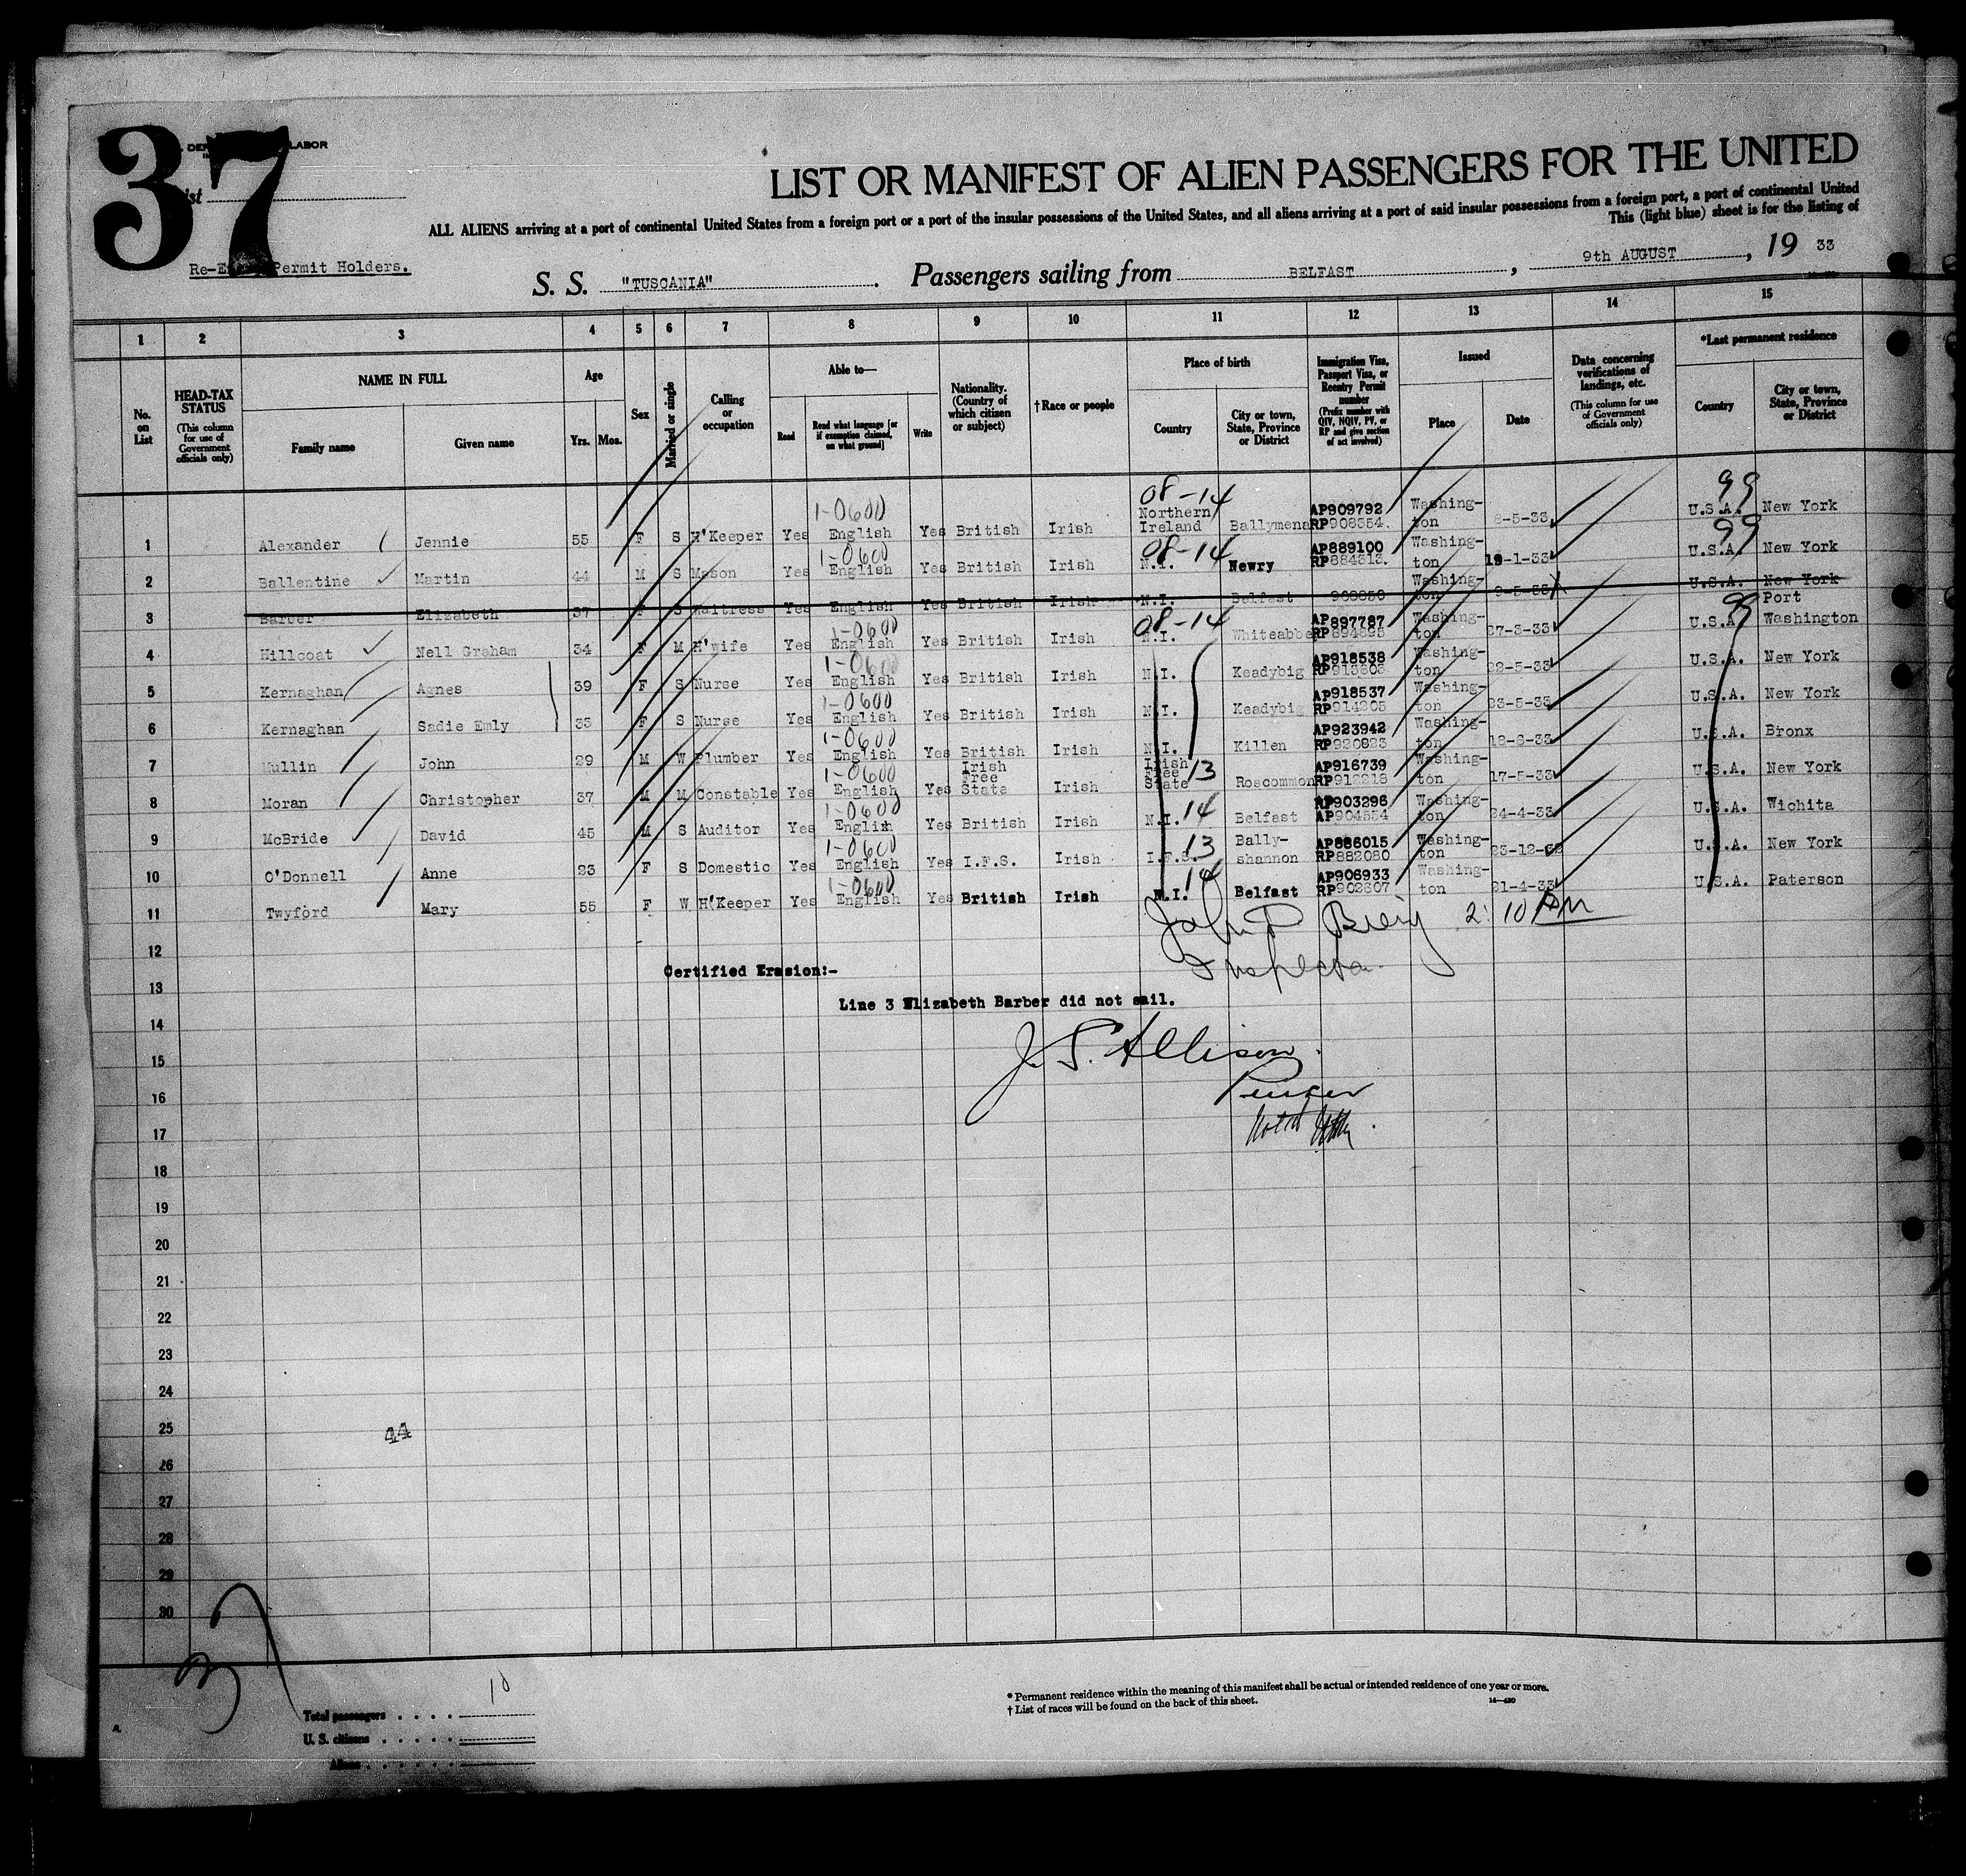 37
LABOR
Re-E Permit Holders.
LIST OR MANIFEST OF ALIEN PASSENGERS FOR THE UNITED
ALL ALIENS arriving at a port of continental United States from a foreign port or a port of the insular possessions of the United States, and all aliens arriving at a port of said insular possessions from a foreign port, a port of continental United
This (light blue) sheet is for the listing of
S. S. "TUSCANIA" . Passengers sailing from BELFAST , 9th AUGUST , 19 33
1 2 3 4 5 6 7 8 9 10 11 12 13 14 15
No. on List
HEAD-TAX STATUS (This column for use of Government officials only)
NAME IN FULL Family name Given name
Age Yrs. Mos.
Sex
Married or single
Calling or occupation
Able to— Read Read what language [or if exemption claimed, on what ground] Write
Nationality. (Country of which citizen or subject)
† Race or people
Place of birth Country City or town, State, Province or District
Immigration Visa, Passport Visa, or Reentry Permit number (Prefix number with QIV, NQIV, PV, or RP and give section of act involved)
Issued Place Date
Data concerning verifications of landings, etc. (This column for use of Government officials only)
*Last permanent residence Country City or town, State, Province or District
1 Alexander Jennie 55 F S H'Keeper Yes 1-0600 English Yes British Irish 08-14 Northern Ireland Ballymena AP909792 RP908354. Washing-ton 8-5-33 99 U.S.A. New York
2 Ballentine Martin 44 M S Mason Yes 1-0600 English Yes British Irish 08-14 N.I. Newry AP889100 RP884313. Washing-ton 19-1-33 99 U.S.A. New York
3 Barber Elizabeth 37 F S Waitress Yes English Yes British Irish N.I. Belfast Washing-ton U.S.A. New York
4 Hillcoat Nell Graham 34 F M H'wife Yes 1-0600 English Yes British Irish 08-14 N.I. Whiteabbe AP897787 RP894895 Washing-ton 27-3-33 99 U.S.A. Port Washington
5 Kernaghan Agnes 39 F S Nurse Yes 1-0600 English Yes British Irish N.I. Keadybig AP918538 Washing-ton 22-5-33 U.S.A. New York
6 Kernaghan Sadie Emly 33 F S Nurse Yes 1-0600 English Yes British Irish N.I. Keadybig AP918537 RP914205 Washing-ton 23-5-33 U.S.A. New York
7 Mullin John 29 M W Plumber Yes 1-0600 English Yes British Irish N.I. Killen AP923942 RP920823 Washing-ton 18-6-33 U.S.A. Bronx
8 Moran Christopher 37 M M Constable Yes 1-0600 English Yes Irish Free State Irish Irish Free State 13 Roscommon AP916739 RP912218 Washing-ton 17-5-33 U.S.A. New York
9 McBride David 45 M S Auditor Yes 1-0600 English Yes British Irish N.I. 14 Belfast RP903296 AP904554 Washing-ton 24-4-33 U.S.A. Wichita
10 O'Donnell Anne 23 F S Domestic Yes 1-0600 English Yes I.F.S. Irish I.F.S. 13 Bally-shannon AP886015 RP882080 Washing-ton 23-12-32 U.S.A. New York
11 Twyford Mary 55 F W H'Keeper Yes 1-0600 English Yes British Irish N.I. 14 Belfast AP906933 RP902607 Washing-ton 21-4-33 U.S.A. Paterson
12
2:10 PM
Inspector
Certified Erasion:-
13
Line 3 Elizabeth Barber did not sail.
14
J. S. Allison.
15
Purser
16
17
18
19
20
21
22
23
24
25
44
26
27
28
29
30
37
Total passengers 10
U. S. citizens
Aliens
* Permanent residence within the meaning of this manifest shall be actual or intended residence of one year or more.
† List of races will be found on the back of this sheet.
14—420